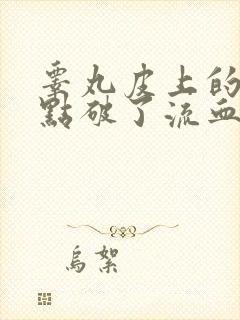 睾丸皮上的
點破了流血
烏絮